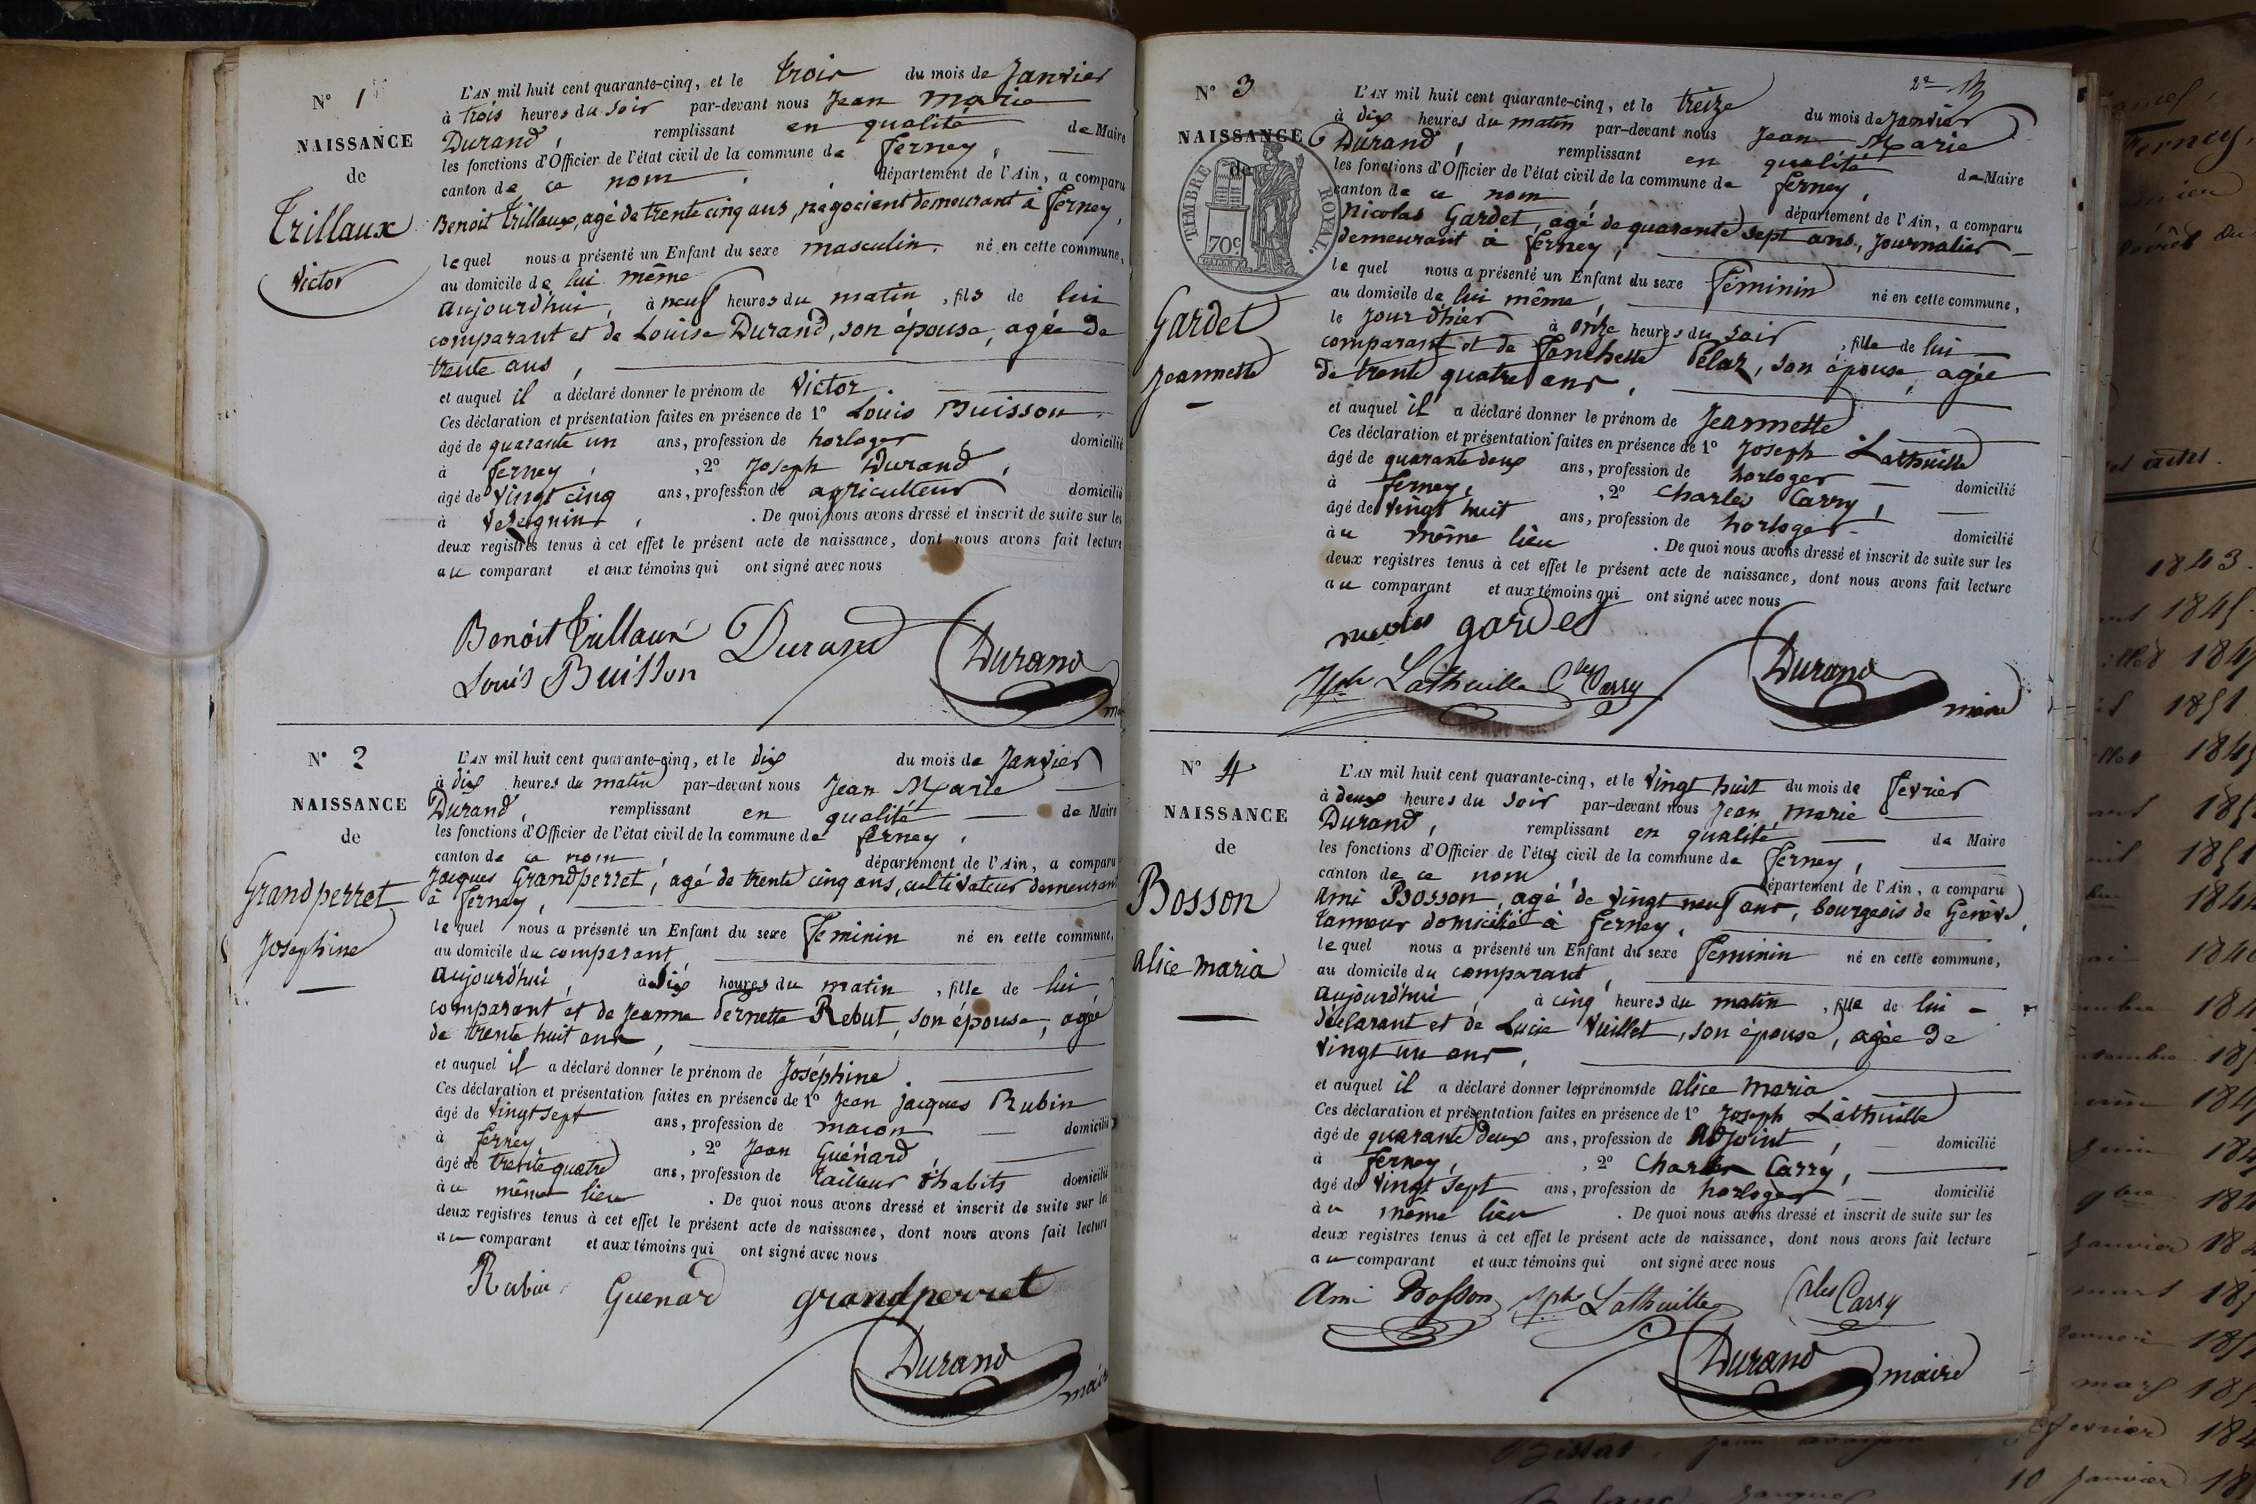 N° 1
NAISSANCE
de
Trillaux
Victor
L'AN mil huit cent quarante-cinq, et le trois du mois de Janvier
à trois heures du soir par-devant nous Jean Marie
Durand, remplissant en qualité de Maire
les fonctions d'Officier de l'état civil de la commune de ferney,
canton de ce nom, département de l'Ain, a comparu
Benoit Trillaux, agé de trente cinq ans, négociant demeurant à ferney,
lequel nous a présenté un Enfant du sexe masculin. né en cette commune,
au domicile de lui même
aujourd'hui, à neuf heures du matin, fils de lui
comparant et de Louise Durand, son épouse, agée de
trente ans,
et auquel il a déclaré donner le prénom de Victor.
Ces déclaration et présentation faites en présence de 1° Louis Buisson.
âgé de quarante un ans, profession de horloger, domicilié
à ferney, , 2° Joseph Durand,
âgé de vingt cinq ans, profession de agriculteur domicilié
à Vesegnin, . De quoi nous avons dressé et inscrit de suite sur les
deux registres tenus à cet effet le présent acte de naissance, dont nous avons fait lecture
au comparant et aux témoins qui ont signé avec nous
Benoit Trillaux Durand Durand
Louis Buisson
N° 2
NAISSANCE
de
Grandperret
Josephine
L'AN mil huit cent quarante-cinq, et le dix du mois de Janvier
à dix heures du matin par-devant nous Jean Marie
Durand, remplissant en qualité de Maire
les fonctions d'Officier de l'état civil de la commune de ferney,
canton de ce nom, département de l'Ain, a comparu
Jacques Grandperret, agé de trente cinq ans, cultivateur demeurant
à ferney,
lequel nous a présenté un Enfant du sexe feminin né en cette commune,
au domicile du comparant,
aujourd'hui, à six heures du matin, fille de lui
comparant et de Jeanne Pernette Rebut, son épouse, agée
de trente huit ans,
et auquel il a déclaré donner le prénom de Joséphine.
Ces déclaration et présentation faites en présence de 1° Jean Jacques Rubin
âgé de vingt sept ans, profession de macon domicilié
à ferney , 2° Jean Guénard,
âgé de trente quatre ans, profession de tailleur d'habits domicilié
au même lieu . De quoi nous avons dressé et inscrit de suite sur les
deux registres tenus à cet effet le présent acte de naissance, dont nous avons fait lecture
au comparant et aux témoins qui ont signé avec nous
Rubin Guenard grandperret
Durand
maire
2e
N° 3
NAISSANCE
de
TIMBRE ROYAL.
70c
Gardet
Jeannette
L'AN mil huit cent quarante-cinq, et le treize du mois de Janvier
à dix heures du matin par-devant nous Jean Marie
Durand, remplissant en qualité de Maire
les fonctions d'Officier de l'état civil de la commune de ferney,
canton de ce nom, département de l'Ain, a comparu
Nicolas Gardet, agé de quarante sept ans, Journalier
demeurant à ferney,
lequel nous a présenté un Enfant du sexe féminin né en cette commune,
au domicile de lui même,
le jour d'hier à onze heures du soir, fille de lui
comparant et de fanchette Pelaz, son épouse, agée
de trente quatre ans,
et auquel il a déclaré donner le prénom de Jeannette
Ces déclaration et présentation faites en présence de 1° Joseph Lathuille
âgé de quarante deux ans, profession de horloger domicilié
à ferney, , 2° Charles Carry,
âgé de vingt huit ans, profession de horloger domicilié
au même lieu . De quoi nous avons dressé et inscrit de suite sur les
deux registres tenus à cet effet le présent acte de naissance, dont nous avons fait lecture
au comparant et aux témoins qui ont signé avec nous
nicolas gardet
Jph Lathuille Cles Carry Durand
maire
N° 4
NAISSANCE
de
Bosson
alice maria
L'AN mil huit cent quarante-cinq, et le vingt huit du mois de fevrier
à deux heures du soir par-devant nous Jean Marie
Durand, remplissant en qualité de Maire
les fonctions d'Officier de l'état civil de la commune de ferney,
canton de ce nom, département de l'Ain, a comparu
Ami Bosson, agé de vingt neuf ans, bourgeois de Genève,
tanneur domicilié à ferney,
lequel nous a présenté un Enfant du sexe feminin né en cette commune,
au domicile du comparant,
aujourd'hui, à cinq heures du matin, fille de lui
déclarant et de Lucie Vuillet, son épouse, agée de
vingt un ans,
et auquel il a déclaré donner les prénoms de alice maria
Ces déclaration et présentation faites en présence de 1° Joseph Lathuille
âgé de quarante deux ans, profession de adjoint, domicilié
à ferney, , 2° Charles Carry,
âgé de vingt sept ans, profession de horloger domicilié
au même lieu . De quoi nous avons dressé et inscrit de suite sur les
deux registres tenus à cet effet le présent acte de naissance, dont nous avons fait lecture
au comparant et aux témoins qui ont signé avec nous
Ami Bosson Jph Lathuille Cles Carry
Durand
maire
ferney,
1843.
1845.
1851
1851
Janvier
mars
fevrier
10 Janvier